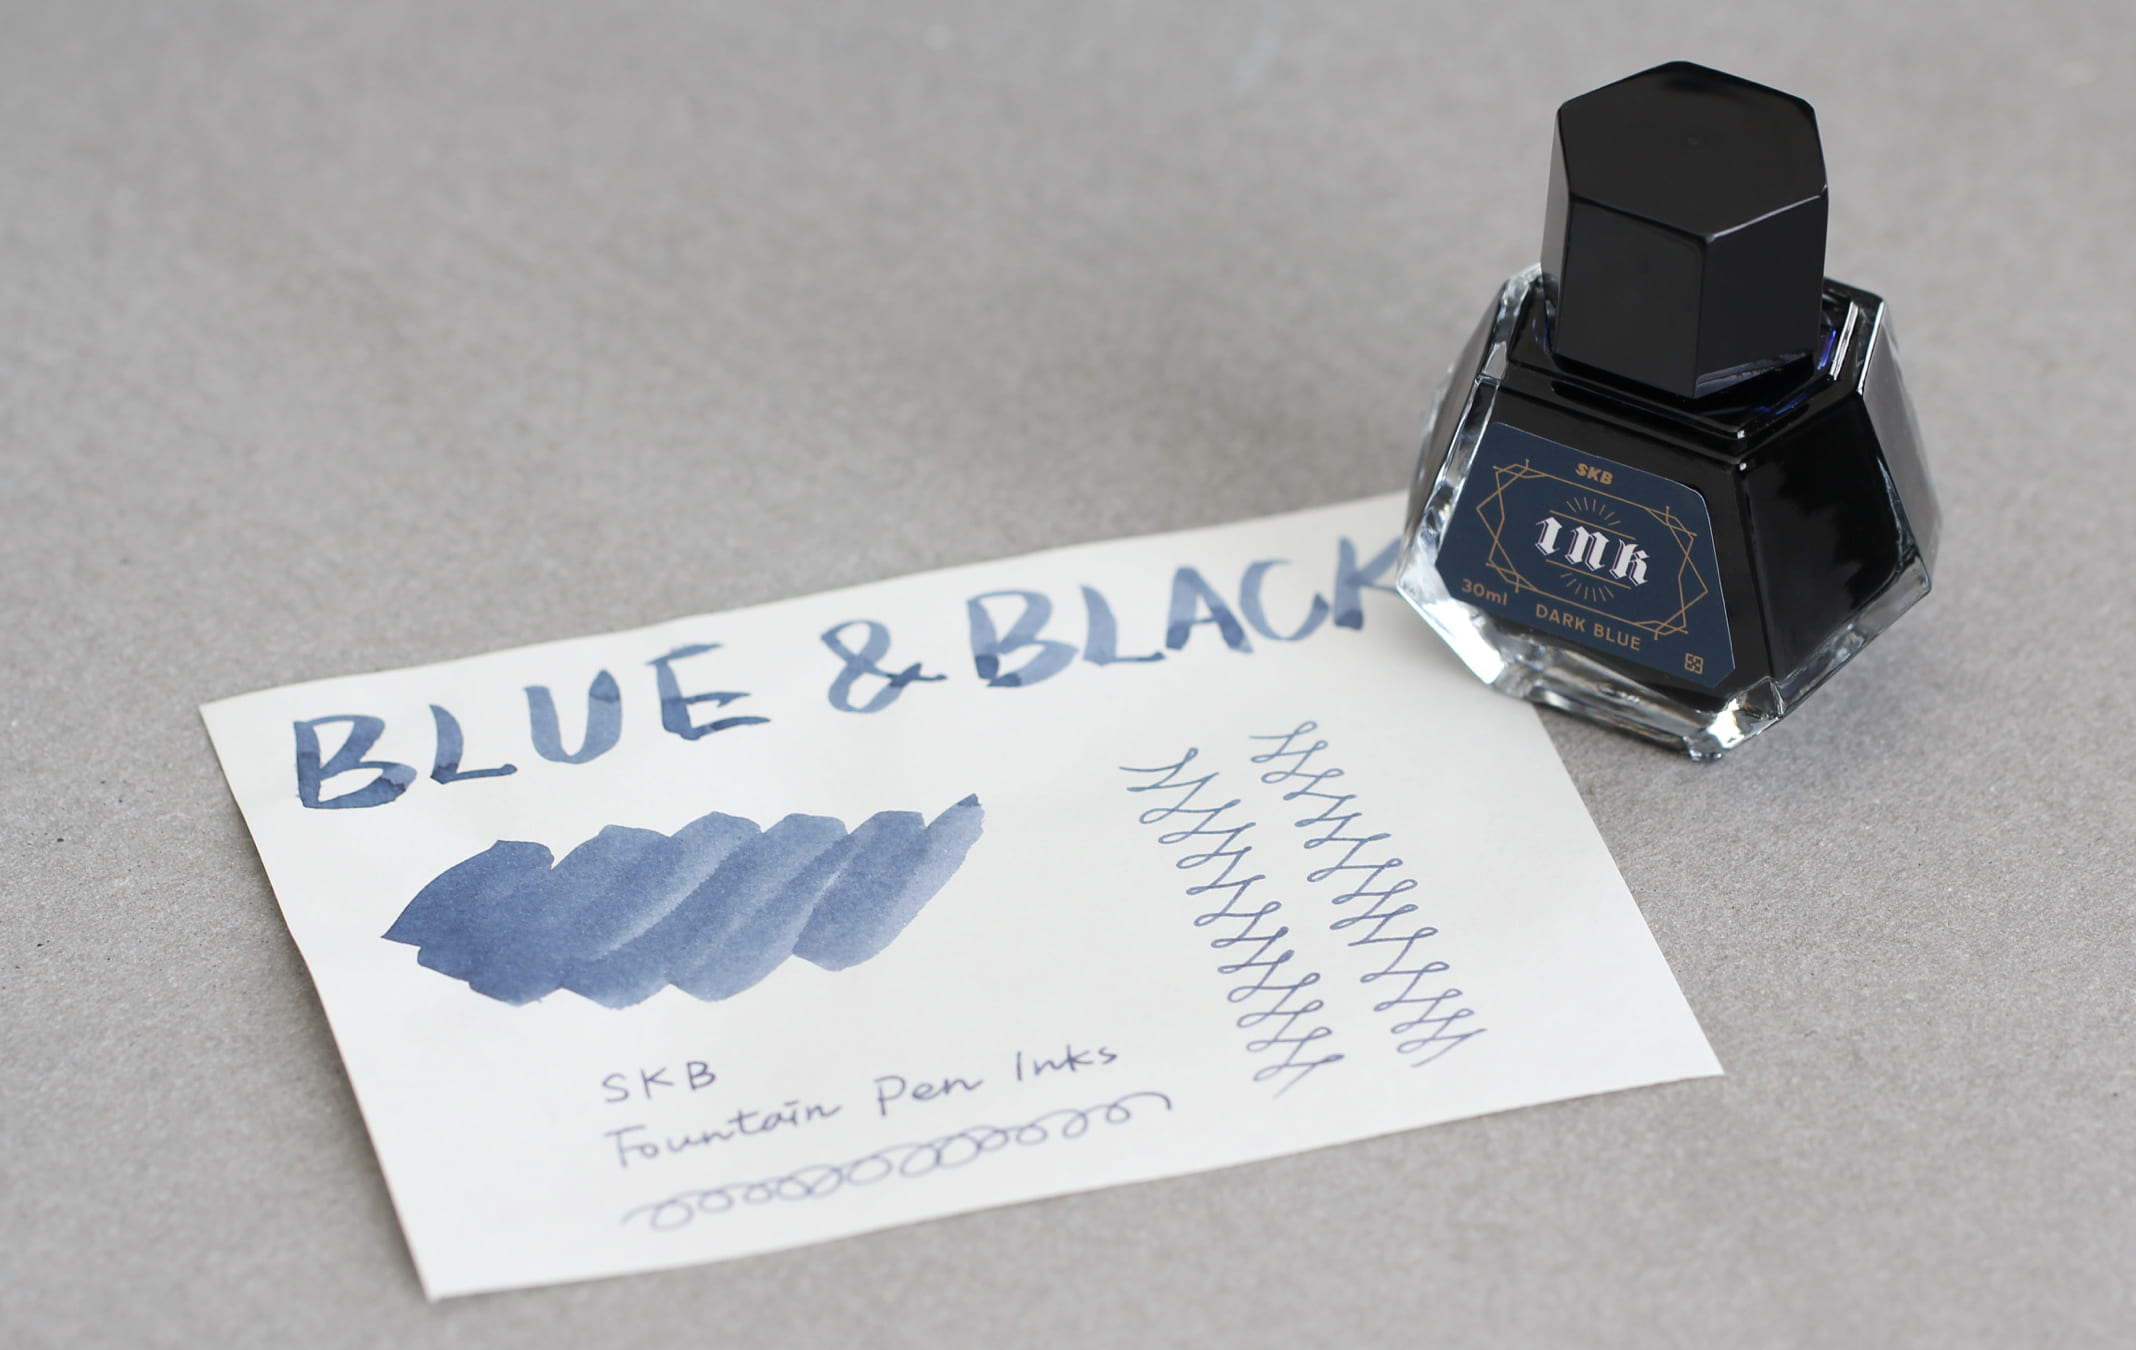 BLUE & BLACK
SKB
Fountain Pen Inks
SKB
ink
30ml
DARK BLUE